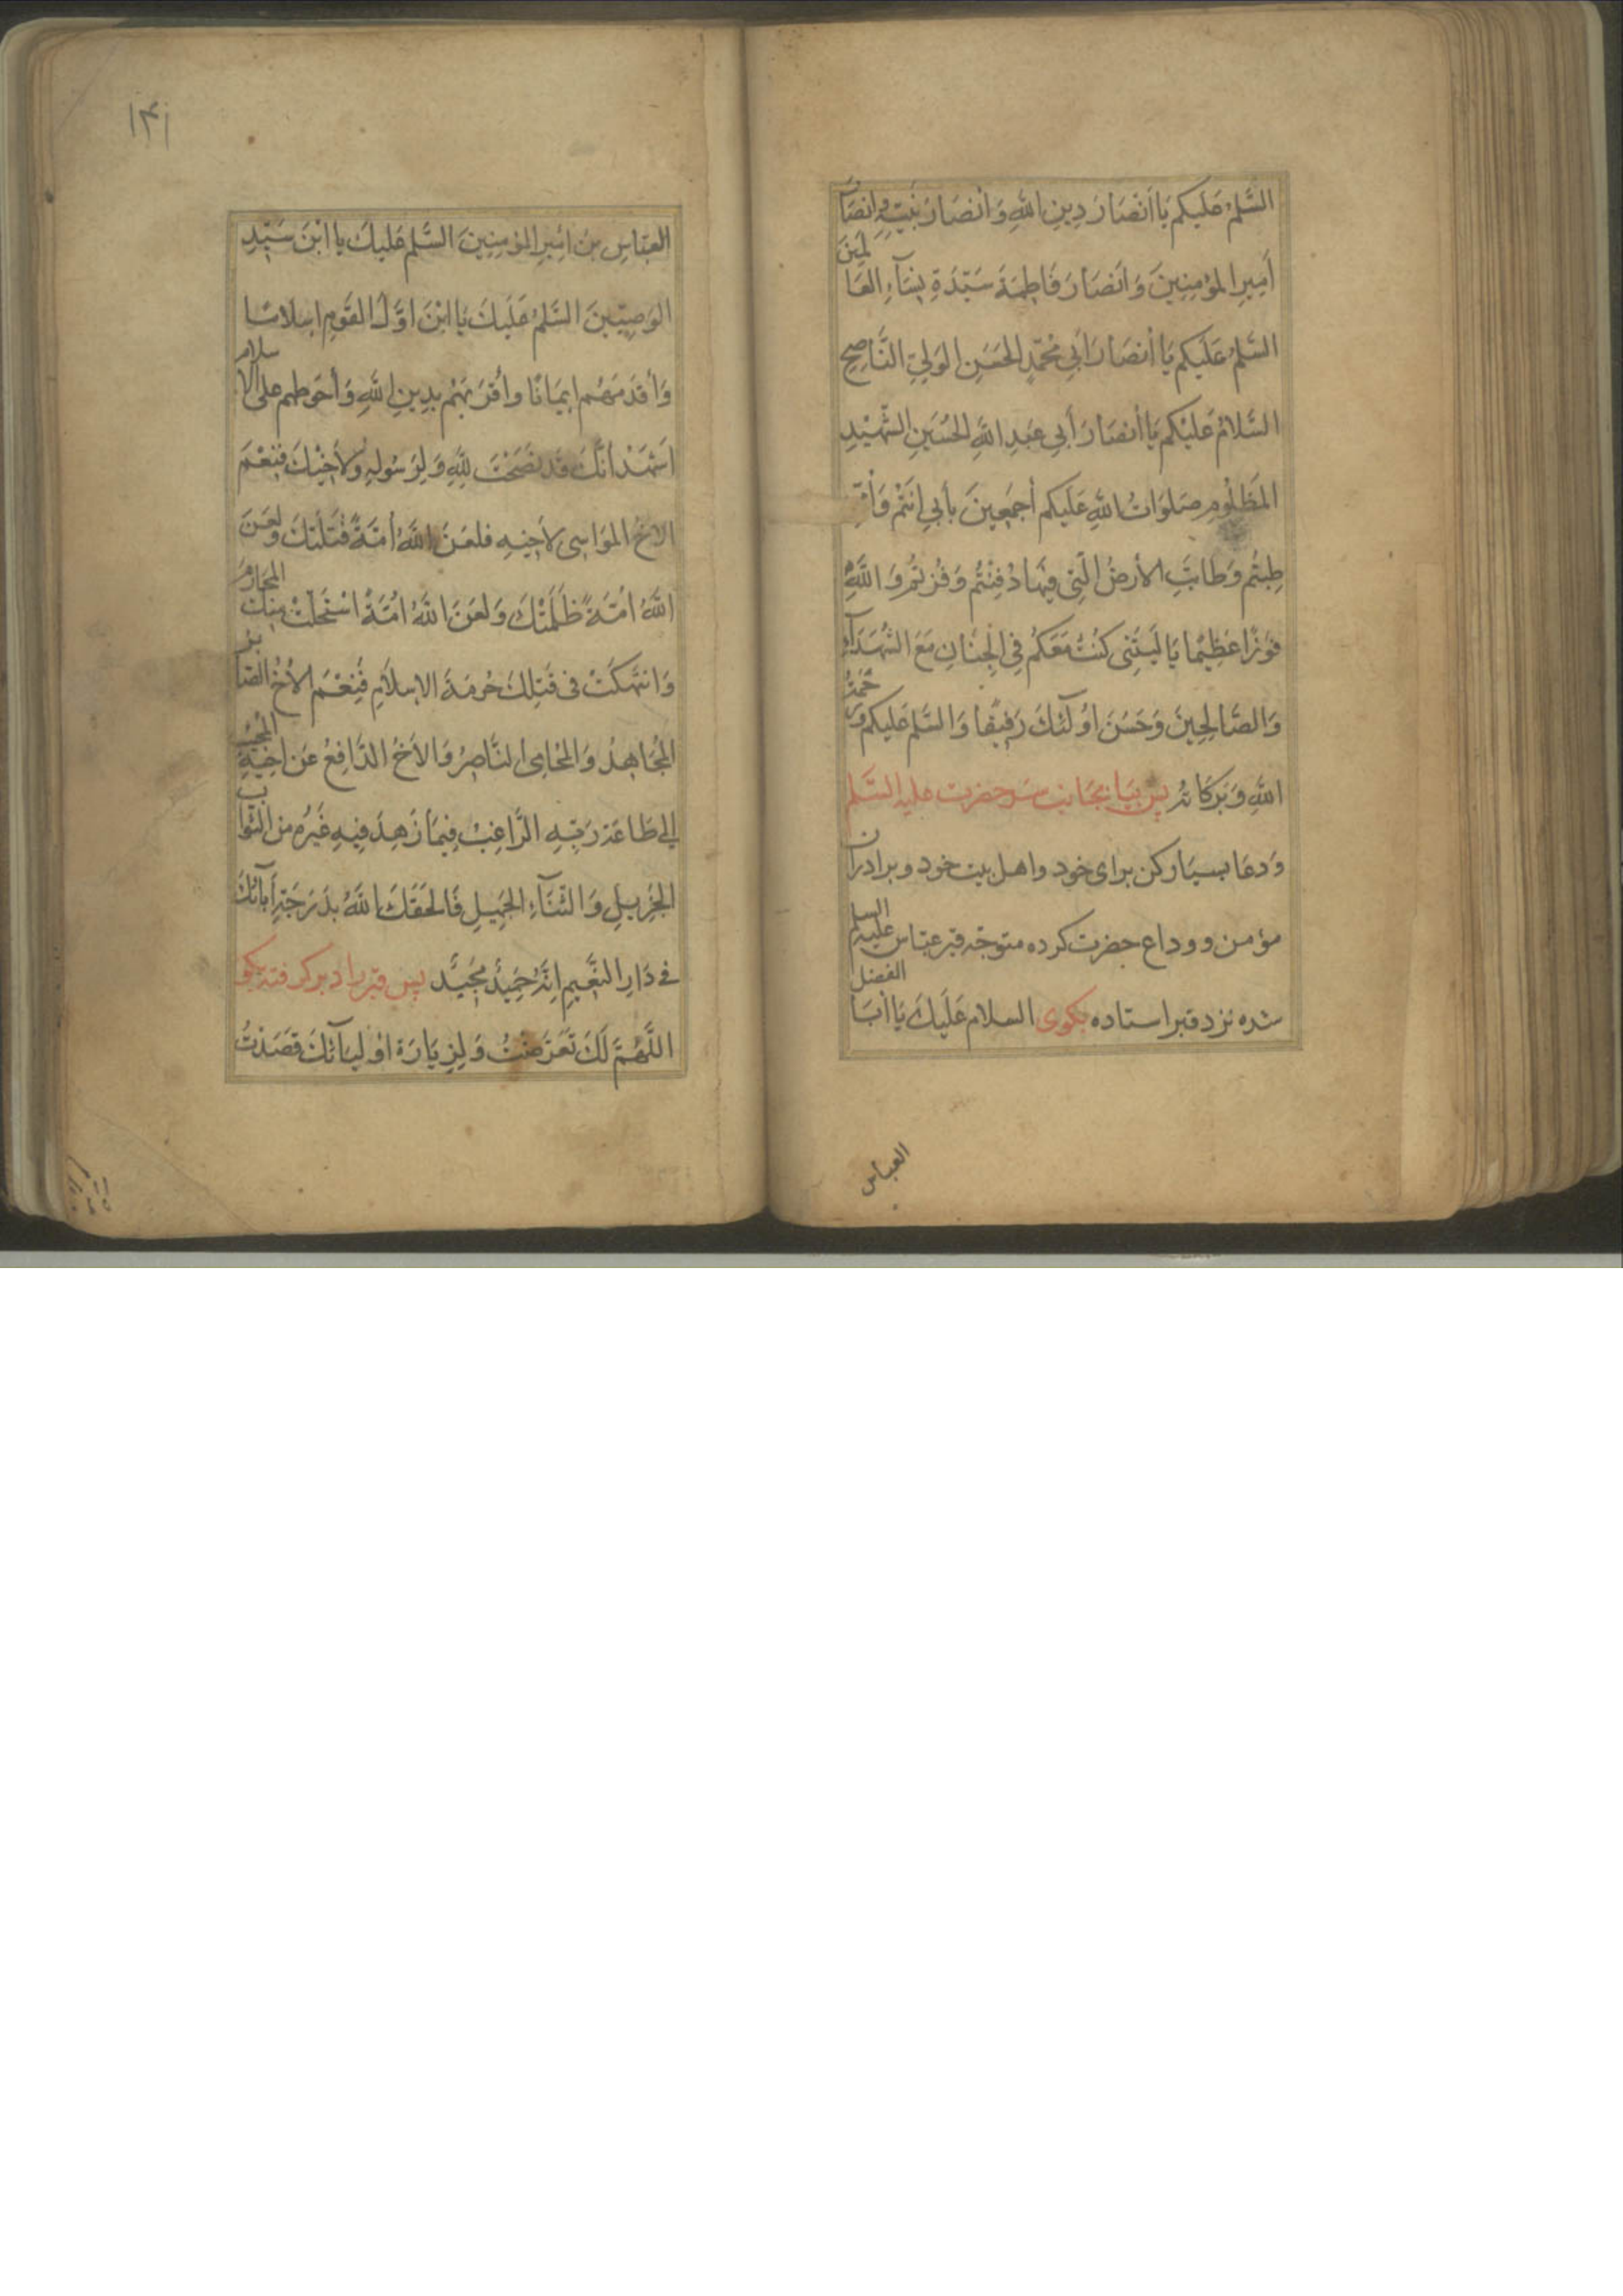 السَّلمُ عَلَيكم يَا اَنْصَارَ دِينِ اللّٰهِ وَ اَنْصَارَ نَبِيِّهِ وَ انصَارَ
أَمِيرِ المؤمِنِينَ وَ اَنصَارَ فَاطِمَةَ سَيِّدَةِ نِسَآءِ العَالَمِينَ
السَّلمُ عَلَيكم يَا أنصَارَ اَبِي مُحَمَّدٍ الحَسَنِ الوَلِيِّ النَّاصِحِ
السَّلامُ عَلَيْكم يَا أنصَارَ أَبي عَبدِ اللّٰهِ الحُسَينِ الشَّهِيْدِ
المَظلُومِ صَلَوَاتُ اللّٰهِ عَلَيكم أجمَعِينَ بأَبي اَنتُم وَأُمّي
طِبتُم وَطَابَتِ الأرضُ الَّتِي فِيهَا دُفِنْتُم وَفُزتُم وَ اللّٰهِ
فَوزًا عَظِيمًا يَا لَيتَنِي كُنتُ مَعَكُم فِي الجِنَانِ مَعَ الشُّهَدَآءِ
وَالصَّالِحِينَ وَحَسُنَ اُولٓئكَ رَفِيقًا وَالسَّلم عَليكم وَرَحمَةُ
اللّٰهِ وَبَرَكَاتُه پس بيا بجانب سر حضرت عليه السّلم
وَدعَا بسيار كن براى خود و اهل بيت خود و برادران
مؤمن و وداع حضرت كرده متوجّه قبر عبّاس عليه السلم
شده نزد قبر استاده بكوى السلام عَلَيكَ يَا اَبَا الفضل
العباس
١٣١
العبّاسِ بنَ اَمِيرِ المؤمِنِينَ السَّلم عَليكَ يا ابْنَ سَيّدِ
الوَصِيّينَ السَّلمُ عَلَيكَ يَا ابْنَ اوَّلِ القَومِ اِسلامًا
وَأَقدَمِهِم اِيمَانًا وأَقرَبهُم بدِينِ اللّٰهِ وَأحوَطِهم على الاسلام
اَشهَدُ أنَّكَ قَد نَصَحْتَ لِلّٰهِ وَلِرَسُولِهِ وَلأخِيْكَ فَنِعْمَ
الاخُ المُوَاسِى لاَخِيهِ فلعَنَ اللّٰهُ أمَّةً قَتَلَتكَ وَلَعَنَ
اللّٰهُ اُمَّةً ظَلَمَتْكَ وَلعَنَ اللّٰهُ اُمَّةً اسْتَحَلَّتْ مِنكَ المحَارِمَ
وَانتَهَكَتْ فى قَتلِكَ حُرمَةَ الاِسلَامِ فَنِعْمَ الأخُ الصّابر
المُجَاهِدُ وَالمُحَامِى النَّاصِرُ وَالأَخُ الدَّافِعُ عَن اَخِيهِ المُجيب
إلى طَاعَةِ رَبِّهِ الرَّاغِبُ فِيمَا زَهِدَ فِيهِ غَيرُه من الثواب
الجَزِيلِ وَ الثّنَآءِ الجَمِيلِ فَالحَقَكَ اللّٰهُ بدَرَجَةِ آبآئكَ
فى دَارِ النَّعِيمِ اِنَّه حَمِيدٌ مَجِيدٌ پس قبر را در بر كرفته بكو
اَللّٰهُمَّ لَكَ تَعَرَّضتُ وَ لِزِيَارَةِ اَوْليَآئكَ قَصَدْتُ